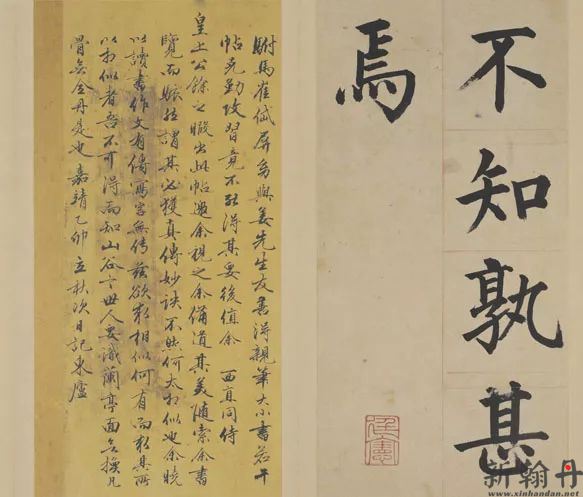 不知孰甚
焉
駙馬崔岱屏翁與姜先生友善得親筆大小書若干
帖克勤攻習竟不能得其要後值余 西直同侍
皇上公餘之暇出此帖邀余視之余備道其美隨索余書
覽而駭然謂其必獲真傳妙訣不然何太相似也余曉
以讀書作文有傳寫字無傳茲欲求相似何有而求其所
以相似者吾不可得而知山谷云世人要識蘭亭面無換凡
骨無金丹是也嘉靖乙卯立秋次日記東廬
新翰丹
www.xinhandan.net